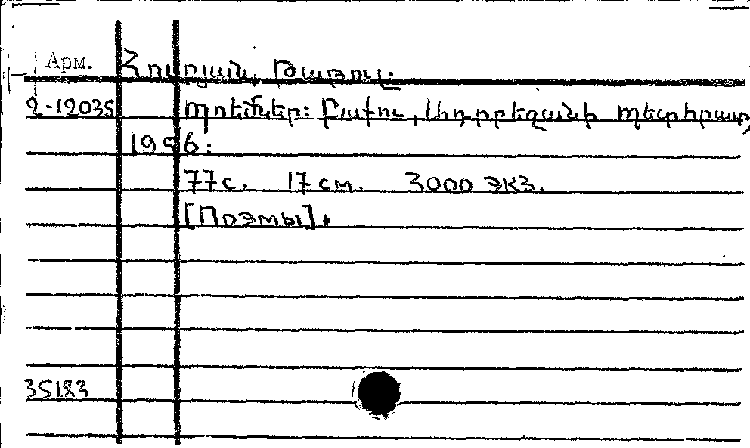 Арм. Հուրյան, Թաթուլ.
2-12035 Պոեմներ: Բաքու, Ադրբեջանի պետհրատ,
1956:
77с. 17см. 3000 экз.
[Поэмы].
35123